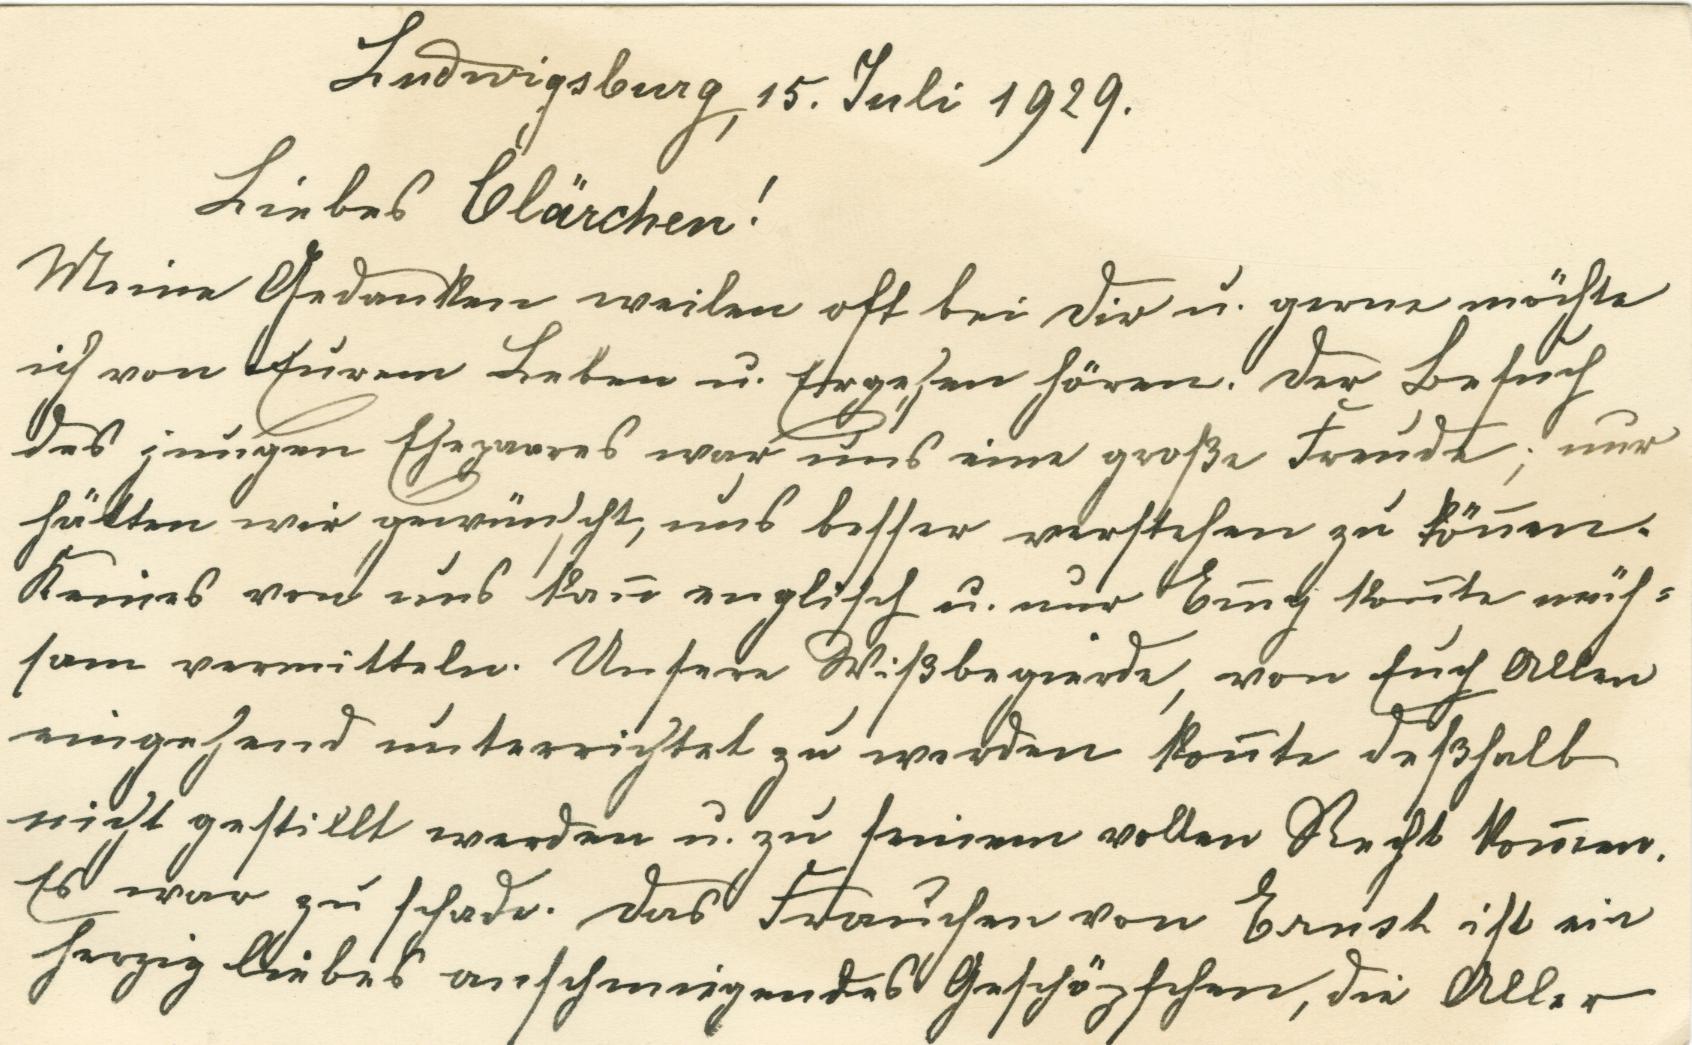 Ludwigsburg, 15. Juli 1929.
Liebes Clärchen!
Meine Gedanken weilen oft bei Dir u. gerne möchte
ich von Eurem Leben u. Ergehen hören. Der Besuch
des jungen Ehepaares war uns eine große Freude; nur
hätten wir gewünscht, uns besser verstehen zu können.
Keines von uns kann englisch u. nur Emy konnte müh=
sam vermitteln. Unsere Wißbegierde, von Euch Allen
eingehend unterrichtet zu werden konnte deßhalb
nicht gestillt werden u. zu seinem vollen Recht kommen.
Es war zu schade. Das Frauchen von Ernst ist ein
herzig liebes anschmiegendes Geschöpfchen, die Aller